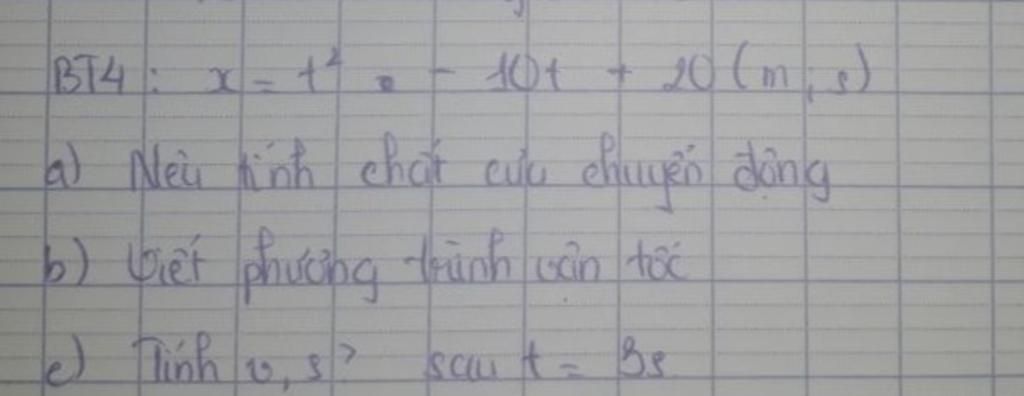 BT4 : x = t² - 10t + 20 (m ; s)
a) Nêu tính chất của chuyển động
b) Viết phương trình vận tốc
c) Tính v, s? sau t = 3s